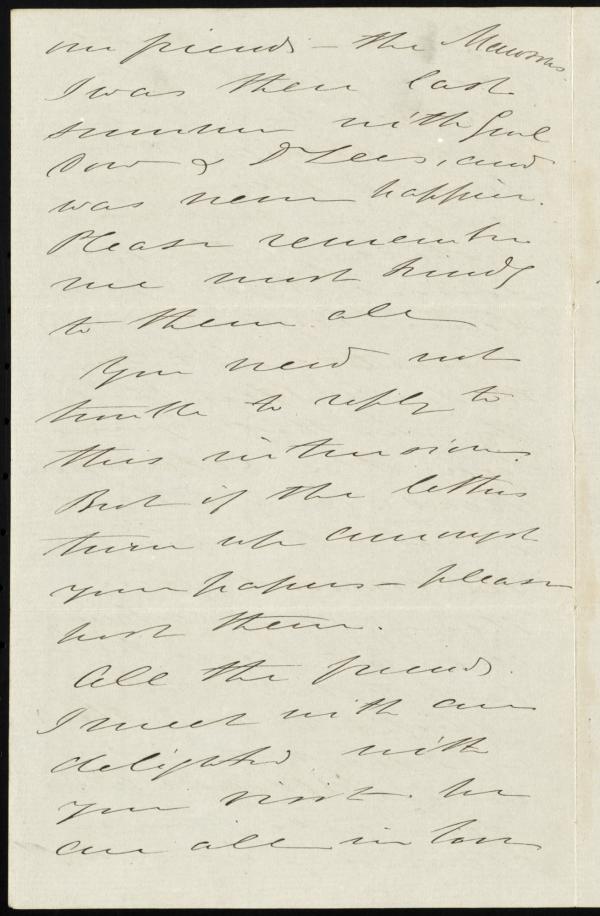 our friends – the Mawsons.
I was there last
summer with Genl
Dow & Dr Lees, and
was never happier.
Please remember
me most kindly
to them all
You need not
trouble to reply to
this intrusion.
But if the letters
turn up amongst
your papers – please
post them.
All the friends
I meet with are
delighted with
your visit. We
are all in love